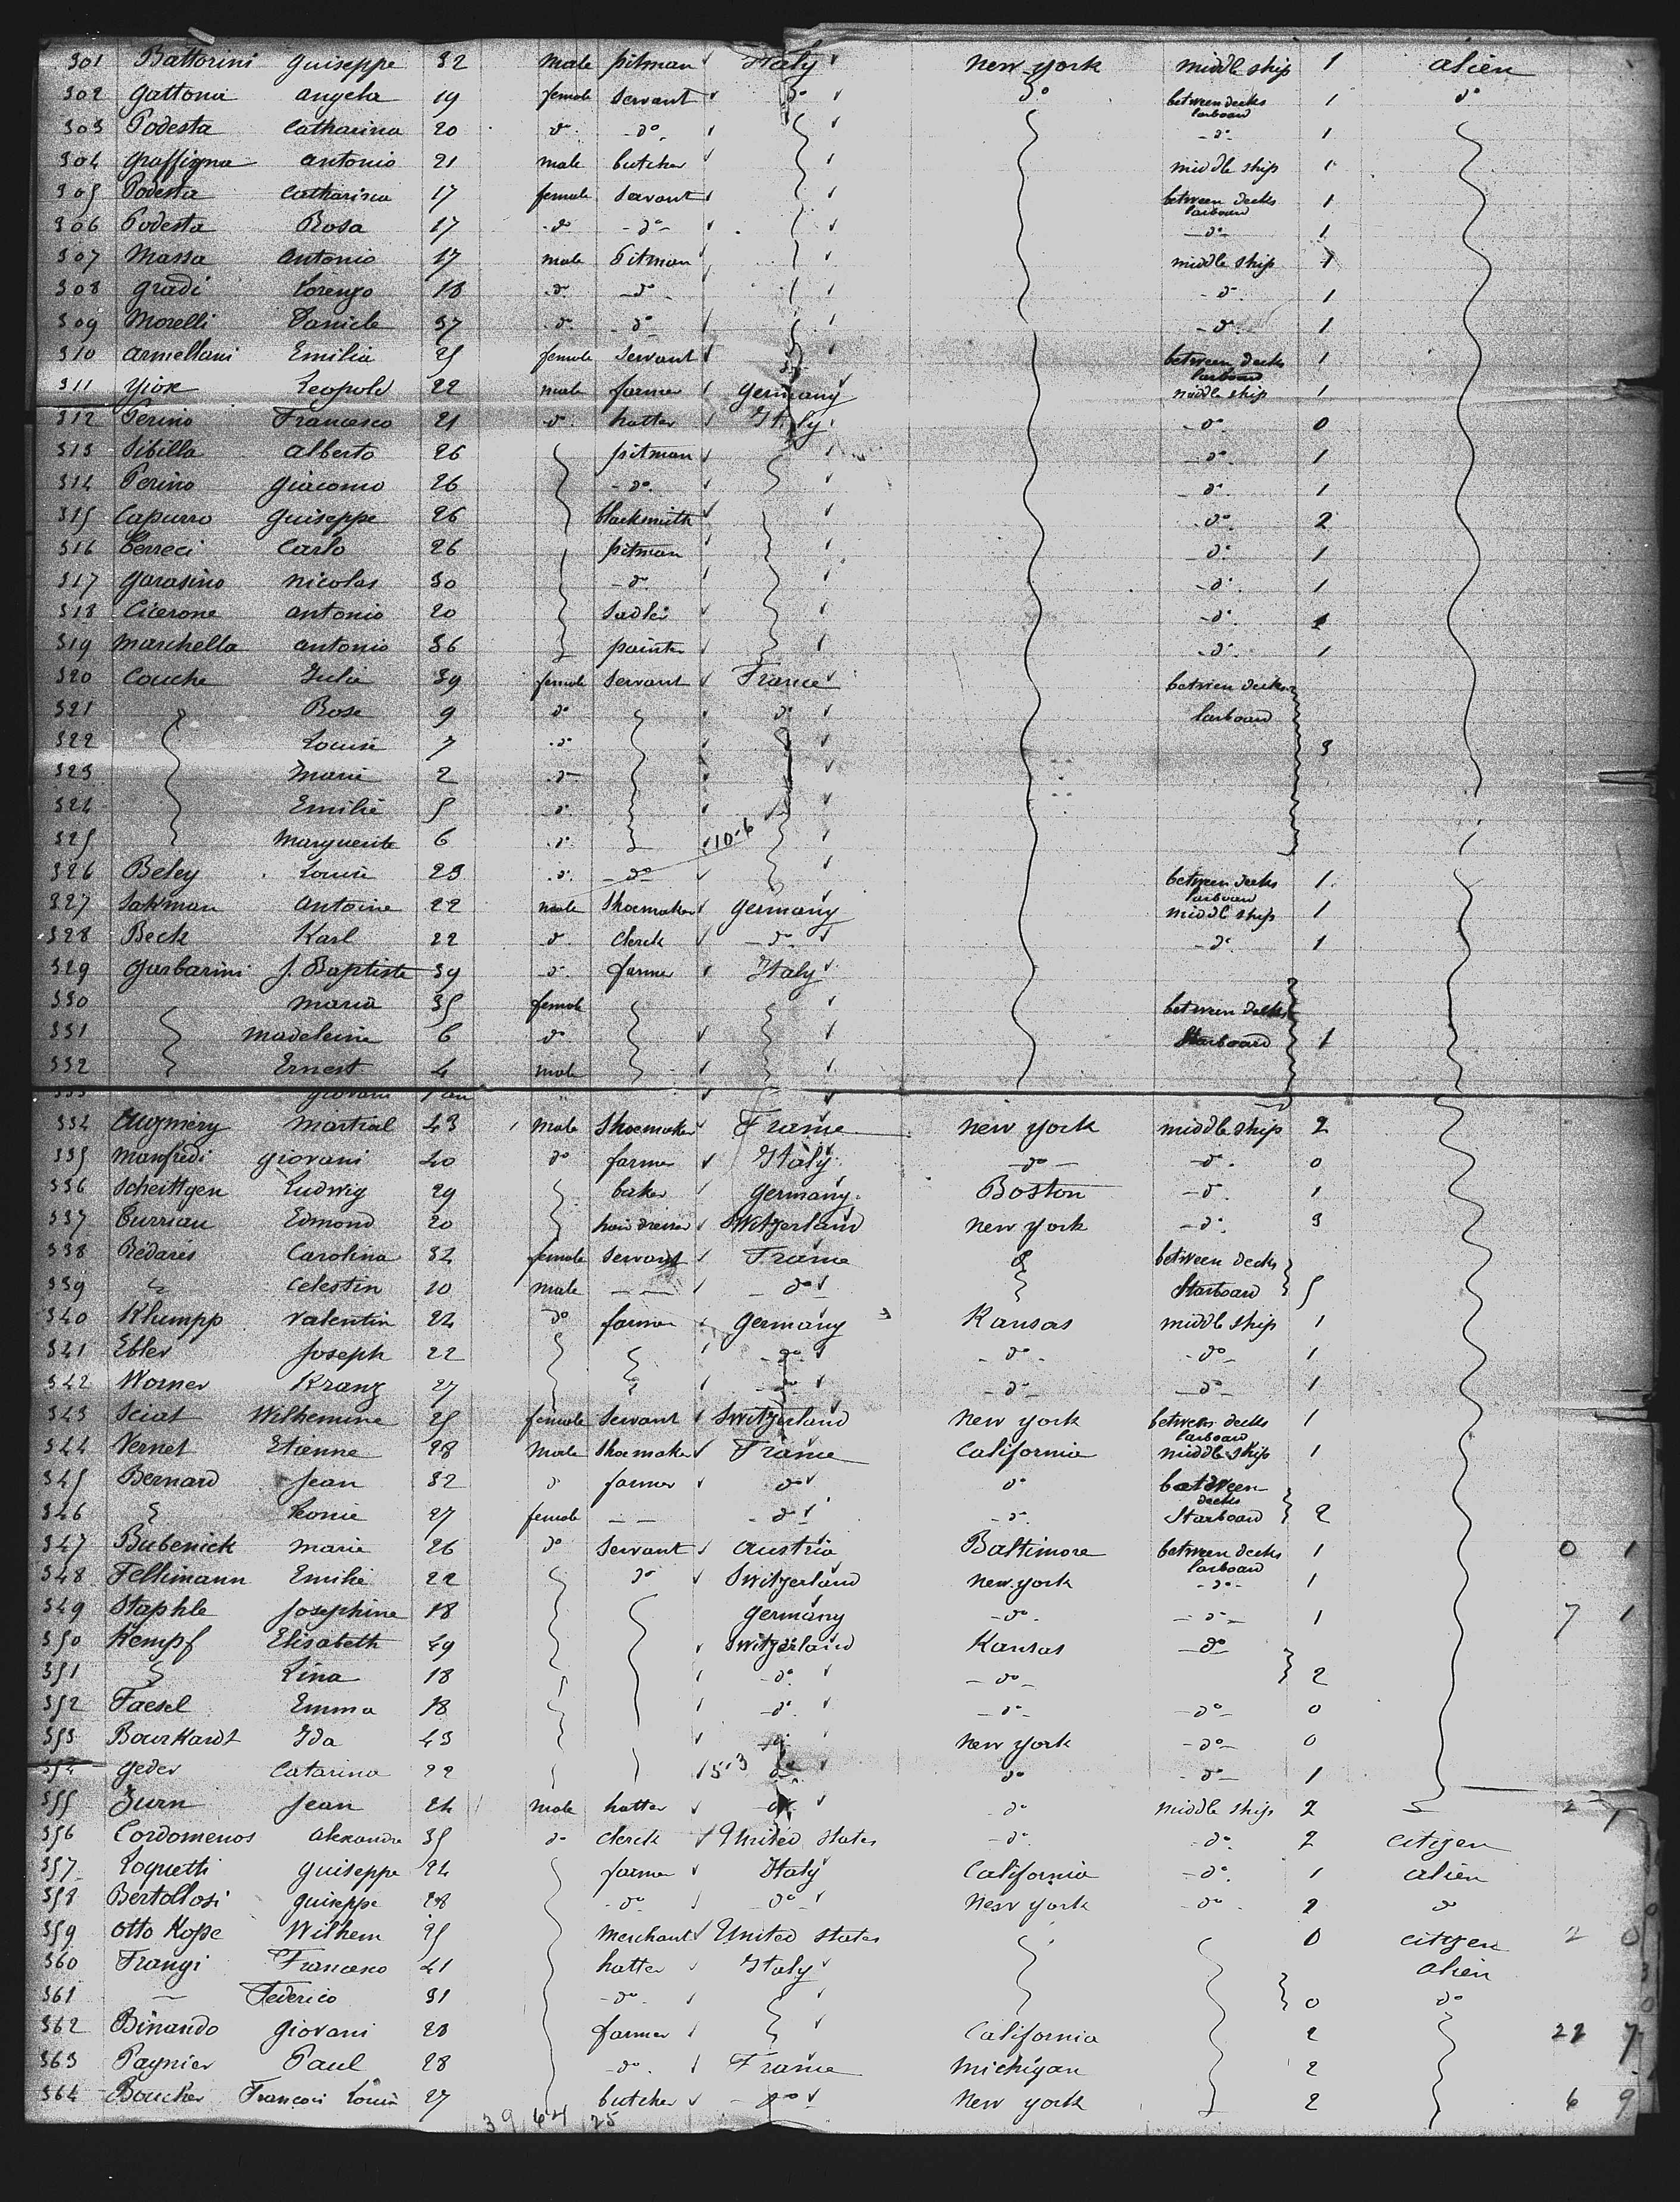 301 Battorini Guiseppe 32 male pitman Italy New York middle ship 1 alien
302 Gattonia Angela 19 female servant do do between decks larboard 1 do
303 Podesta Catharina 20 do do -do- 1
304 Graffigna Antonio 21 male butcher middle ship 1
305 Podesta Catharina 17 female servant between decks larboard 1
306 Podesta Rosa 17 do -do- -do- 1
307 Massa Antonio 17 male Pitman middle ship 1
308 Gradi Lorenzo 18 do -do- -do- 1
309 Morelli Daniele 37 do -do- -do- 1
310 Armellani Emilia 25 female servant between decks larboard 1
311 Leopold 22 male farmer Germany middle ship 1
312 Perino Francesco 21 do hatter Italy -do- 0
313 Sibilla Alberto 26 pitman -do- 1
314 Perino Giacomo 26 -do- do 1
315 Capurro Guiseppe 26 blacksmith do 2
316 Carlo 26 pitman -do- 1
317 Garasino Nicolas 30 -do- -do- 1
318 Cicerone Antonio 20 Sadler -do- 1
319 Marchella Antonio 36 painter -do- 1
320 Couche Julia 39 female servant France between decks
321 Rose 9 do do larboard
322 Louise 7 do 3
323 Marie 2 do
324 Emilie 5 do
325 Marguerite 6 do 10-6
326 Beley Louise 23 do -do- between decks larboard 1
327 Sakman Antoine 22 male Shoemaker Germany middle ship 1
328 Beck Karl 22 do Clerck -do- -do- 1
329 Garbarini J. Baptiste 39 do farmer Italy
330 Maria 35 female between decks
331 Madeleine 6 do Starboard 1
332 Ernest 4 male
333 Giovani 1 an
334 Martial 43 male Shoemaker France New York middle ship 2
335 Manfredi Giovani 40 do farmer Italy -do- -do- 0
336 Scheittgen Ludwig 29 baker Germany Boston -do- 1
337 Curriau Edmond 20 hair dresser Switzerland New York -do- 3
338 Bédarès Carolina 32 female servant France between decks
339 Celestin 10 male -do- Starboard 5
340 Klumpp Valentin 24 do farmer Germany Kansas middle ship 1
341 Ebler Joseph 22 -do- -do- -do- 1
342 Worner Kranz 27 -do- -do- -do- 1
343 Sciat Wilhemine 25 female servant Switzerland New York between decks larboard 1
344 Vernet Etienne 28 male Shoemaker France California middle ship 1
345 Bernard Jean 32 do farmer do do between decks
346 Leonie 27 female do -do- Starboard 2
347 Bubenick Marie 26 do servant Austria Baltimore between decks larboard 1 0 1
348 Feltimann Emilie 22 do Switzerland New York -do- 1
349 Staphle Josephine 18 Germany -do- -do- 1 7 1
350 Kempf Elisabeth 49 Switzerland Kansas -do-
351 Lina 18 -do- -do- 2
352 Faesel Emma 18 -do- -do- -do- 0
353 Bourkardt Ida 43 do New York -do- 0
354 Geder Catarina 22 5-3 do do -do- 1
355 Zurn Jean 24 male hatter do do middle ship 2
356 Cordomenos Alexandre 35 do Clerck United States -do- -do- 2 citizen
357 Roquetti Guiseppe 24 farmer Italy California -do- 1 alien
358 Bertollosi Guiseppe 28 -do- -do- New York do 2 do
359 Otto Kope Wilhem 25 Merchant United States 0 citizen 2 0
360 Frangi Francesco 41 hatter Italy alien
361 Federico 31 -do- 0 do
362 Binando Giovani 28 farmer California 2 22 7
363 Paynier Paul 28 -do- France Michigan 2
364 Boucher Francois Louis 27 butcher do New York 2 6 9
39 64 25